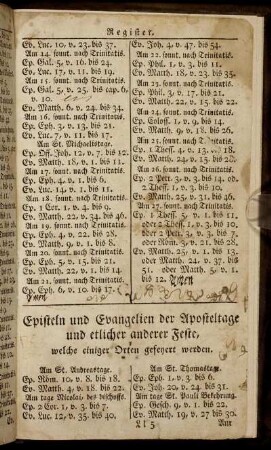 Register.
Ev. Luc. 10, v. 23. bis 37.
Am 14. sonnt. nach Trinitatis.
Ep. Gal. 5, v. 16. bis 24.
Ev. Luc. 17, v. 11. bis 19.
Am 15. sonnt. nach Trinitatis.
Ep. Gal. 5, v. 25. bis cap. 6,
v. 10.
Ev. Matth. 6, v. 24. bis 34.
Am 16. sonnt. nach Trinitatis.
Ep. Eph. 3, v. 13. bis 21.
Ev. Luc. 7, v. 11. bis 17.
Am St. Michaelistage.
Ep. Off. Joh. 12, v. 7. bis 12.
Ev. Matth. 18, v. 1. bis 11.
Am 17. sonnt. nach Trinitatis.
Ep. Eph. 4, v. 1. bis 6.
Ev. Luc. 14, v. 1. bis 11.
Am 18. sonnt. nach Trinitatis.
Ep. 1 Cor. 1, v. 4. bis 9.
Ev. Matth. 22, v. 34. bis 46.
Am 19. sonnt. nach Trinitatis.
Ep. Eph. 4, v. 22. bis 28.
Ev. Matth. 9, v. 1. bis 8.
Am 20. sonnt. nach Trinitatis.
Ep. Eph. 5, v. 15. bis 21.
Ev. Matth. 22, v. 1. bis 14.
Am 21. sonnt. nach Trinitatis.
Ep. Eph. 6, v. 10. bis 17.
Ev. Joh. 4, v. 47. bis 54.
Am 22. sonnt. nach Trinitatis.
Ep. Phil. 1, v. 3. bis 11.
Ev. Matth. 18, v. 23. bis 35.
Am 23. sonnt. nach Trinitatis.
Ep. Phil. 3, v. 17. bis 21.
Ev. Matth. 22, v. 15. bis 22.
Am 24. sonnt. nach Trinitatis.
Ep. Coloss. 1, v. 9. bis 14.
Ev. Matth. 9, v. 18. bis 26.
Am 25. sonnt. nach Trinitatis.
Ep. 1 Thess. 4, v. 13. bis 18.
Ev. Matth. 24, v. 15. bis 28.
Am 26. sonnt. nach Trinitatis.
Ep. 2 Petr. 3, v. 3. bis 14. oder
2 Thess. 1, v. 3. bis 10.
Ev. Matth. 25, v. 31. bis 46.
Am 27. sonnt. nach Trinitatis.
Ep. 1 Thess. 5, v. 1. bis 11.
oder 2 Thess. 1, v. 3. bis 10.
oder 2 Petr. 3, v. 3. bis 7.
oder Röm. 3, v. 21. bis 28.
Ev. Matth. 25, v. 1. bis 13.
oder Matth. 24, v. 37. bis
51. oder Matth. 5, v. 1.
bis 12.
Episteln und Evangelien der Aposteltage
und etlicher anderer Feste,
welche einiger Orten gefeyert werden.
Am St. Andreastage.
Ep. Röm. 10, v. 8. bis 18.
Ev. Matth. 4, v. 18. bis 22.
Am tage Nicolai, des bischoffs.
Ep. 2 Cor. 1, v. 3. bis 7.
Ev. Luc. 12, v. 35. bis 40.
Am St. Thomastage.
Ep. Eph. 1, v. 3. bis 6.
Ev. Joh. 20, v. 24. bis 31.
Am tage St. Pauli Bekehrung.
Ep. Gesch. 9, v. 1. bis 22.
Ev. Matth. 19, v. 27. bis 30.
Ll 5
Am